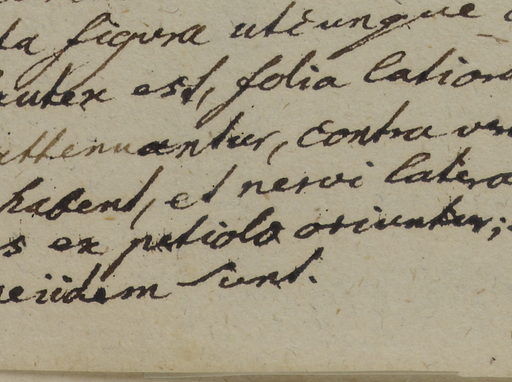 ta figura utcunque
frutex est, folia latiora
attenuantur, contra
habent, et nervi latera
s ex petiolo oriuntur;
eiidem sunt.